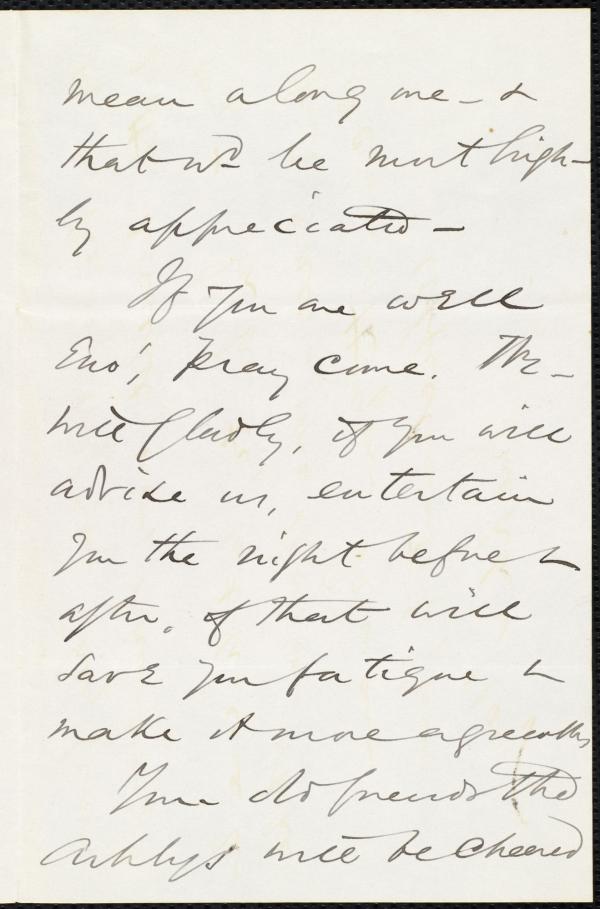 mean a long one - &
that wd be most high-
ly appreciated -
If you are well
Eno', pray come. We
will gladly, if you will
advise us, entertain
you the night before &
after, if that will
save you fatigue &
make it more agreeable
Your old friends the
will be cheered